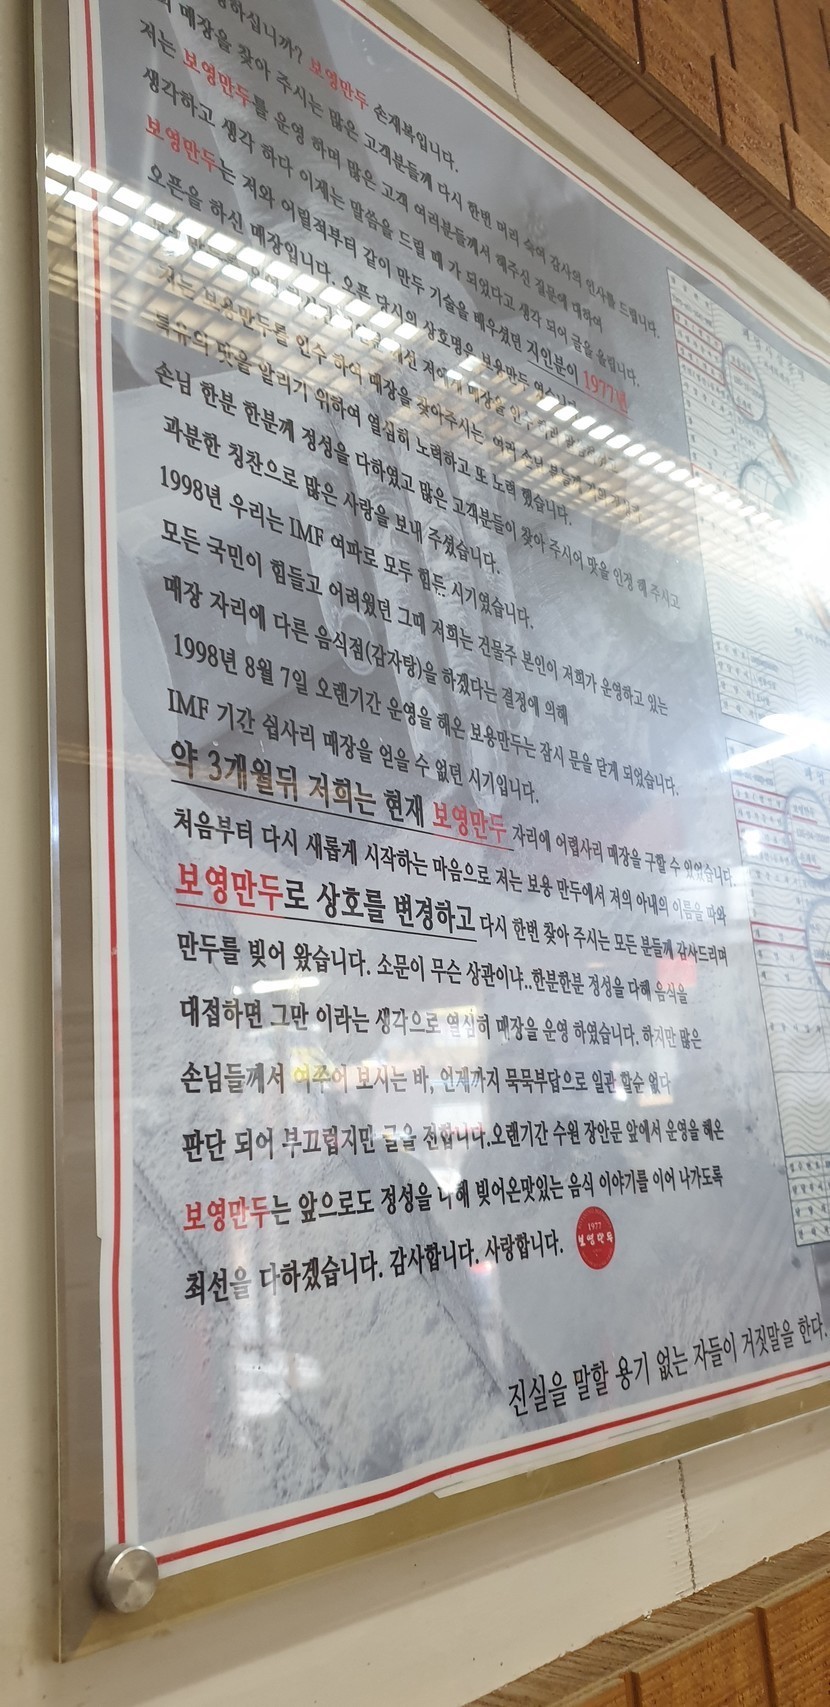 하십니까? 보영만두 손재복입니다.
매장을 찾아 주시는 많은 고객분들께 다시 한번 머리 숙여 감사의 인사를 드립니다.
저는 보영만두를 운영 하며 많은 고객 여러분들께서 해주신 질문에 대하여
생각하고 생각 하다 이제는 말씀을 드릴 때 가 되었다고 생각 되어 글을 올립니다.
보영만두는 저와 어릴적부터 같이 만두 기술을 배우셨던 지인분이 1977년
오픈을 하신 매장입니다. 오픈 당시의 상호명은 보용만두 였습니다.
저에게 매장을
저는 보용만두를 인수 하여 매장을 찾아주시는 여러 손님
특유의 맛을 알리기 위하여 열심히 노력하고 또 노력 했습니다.
손님 한분 한분께 정성을 다하였고 많은 고객분들이 찾아 주시어 맛을 인정 해 주시고
과분한 칭찬으로 많은 사랑을 보내 주셨습니다.
1998년 우리는 IMF 여파로 모두 힘든 시기였습니다.
모든 국민이 힘들고 어려웠던 그때 저희는 건물주 본인이 저희가 운영하고 있는
매장 자리에 다른 음식점(감자탕)을 하겠다는 결정에 의해
1998년 8월 7일 오랜기간 운영을 해온 보용만두는 잠시 문을 닫게 되었습니다.
IMF 기간 쉽사리 매장을 얻을 수 없던 시기입니다.
약 3개월뒤 저희는 현재 보영만두 자리에 어렵사리 매장을 구할 수 있었습니다.
처음부터 다시 새롭게 시작하는 마음으로 저는 보용 만두에서 저의 아내의 이름을 따와
보영만두로 상호를 변경하고 다시 한번 찾아 주시는 모든 분들께 감사드리며
만두를 빚어 왔습니다. 소문이 무슨 상관이냐..한분한분 정성을 다해 음식을
대접하면 그만 이라는 생각으로 열심히 매장을 운영 하였습니다. 하지만 많은
손님들께서 여쭈어 보시는 바, 언제까지 묵묵부답으로 일관 할순 없다
판단 되어 부끄럽지만 글을 전합니다.오랜기간 수원 장안문 앞에서 운영을 해온
보영만두는 앞으로도 정성을 다해 빚어온맛있는 음식 이야기를 이어 나가도록
최선을 다하겠습니다. 감사합니다. 사랑합니다.
1977
보영만두
진실을 말할 용기 없는 자들이 거짓말을 한다.